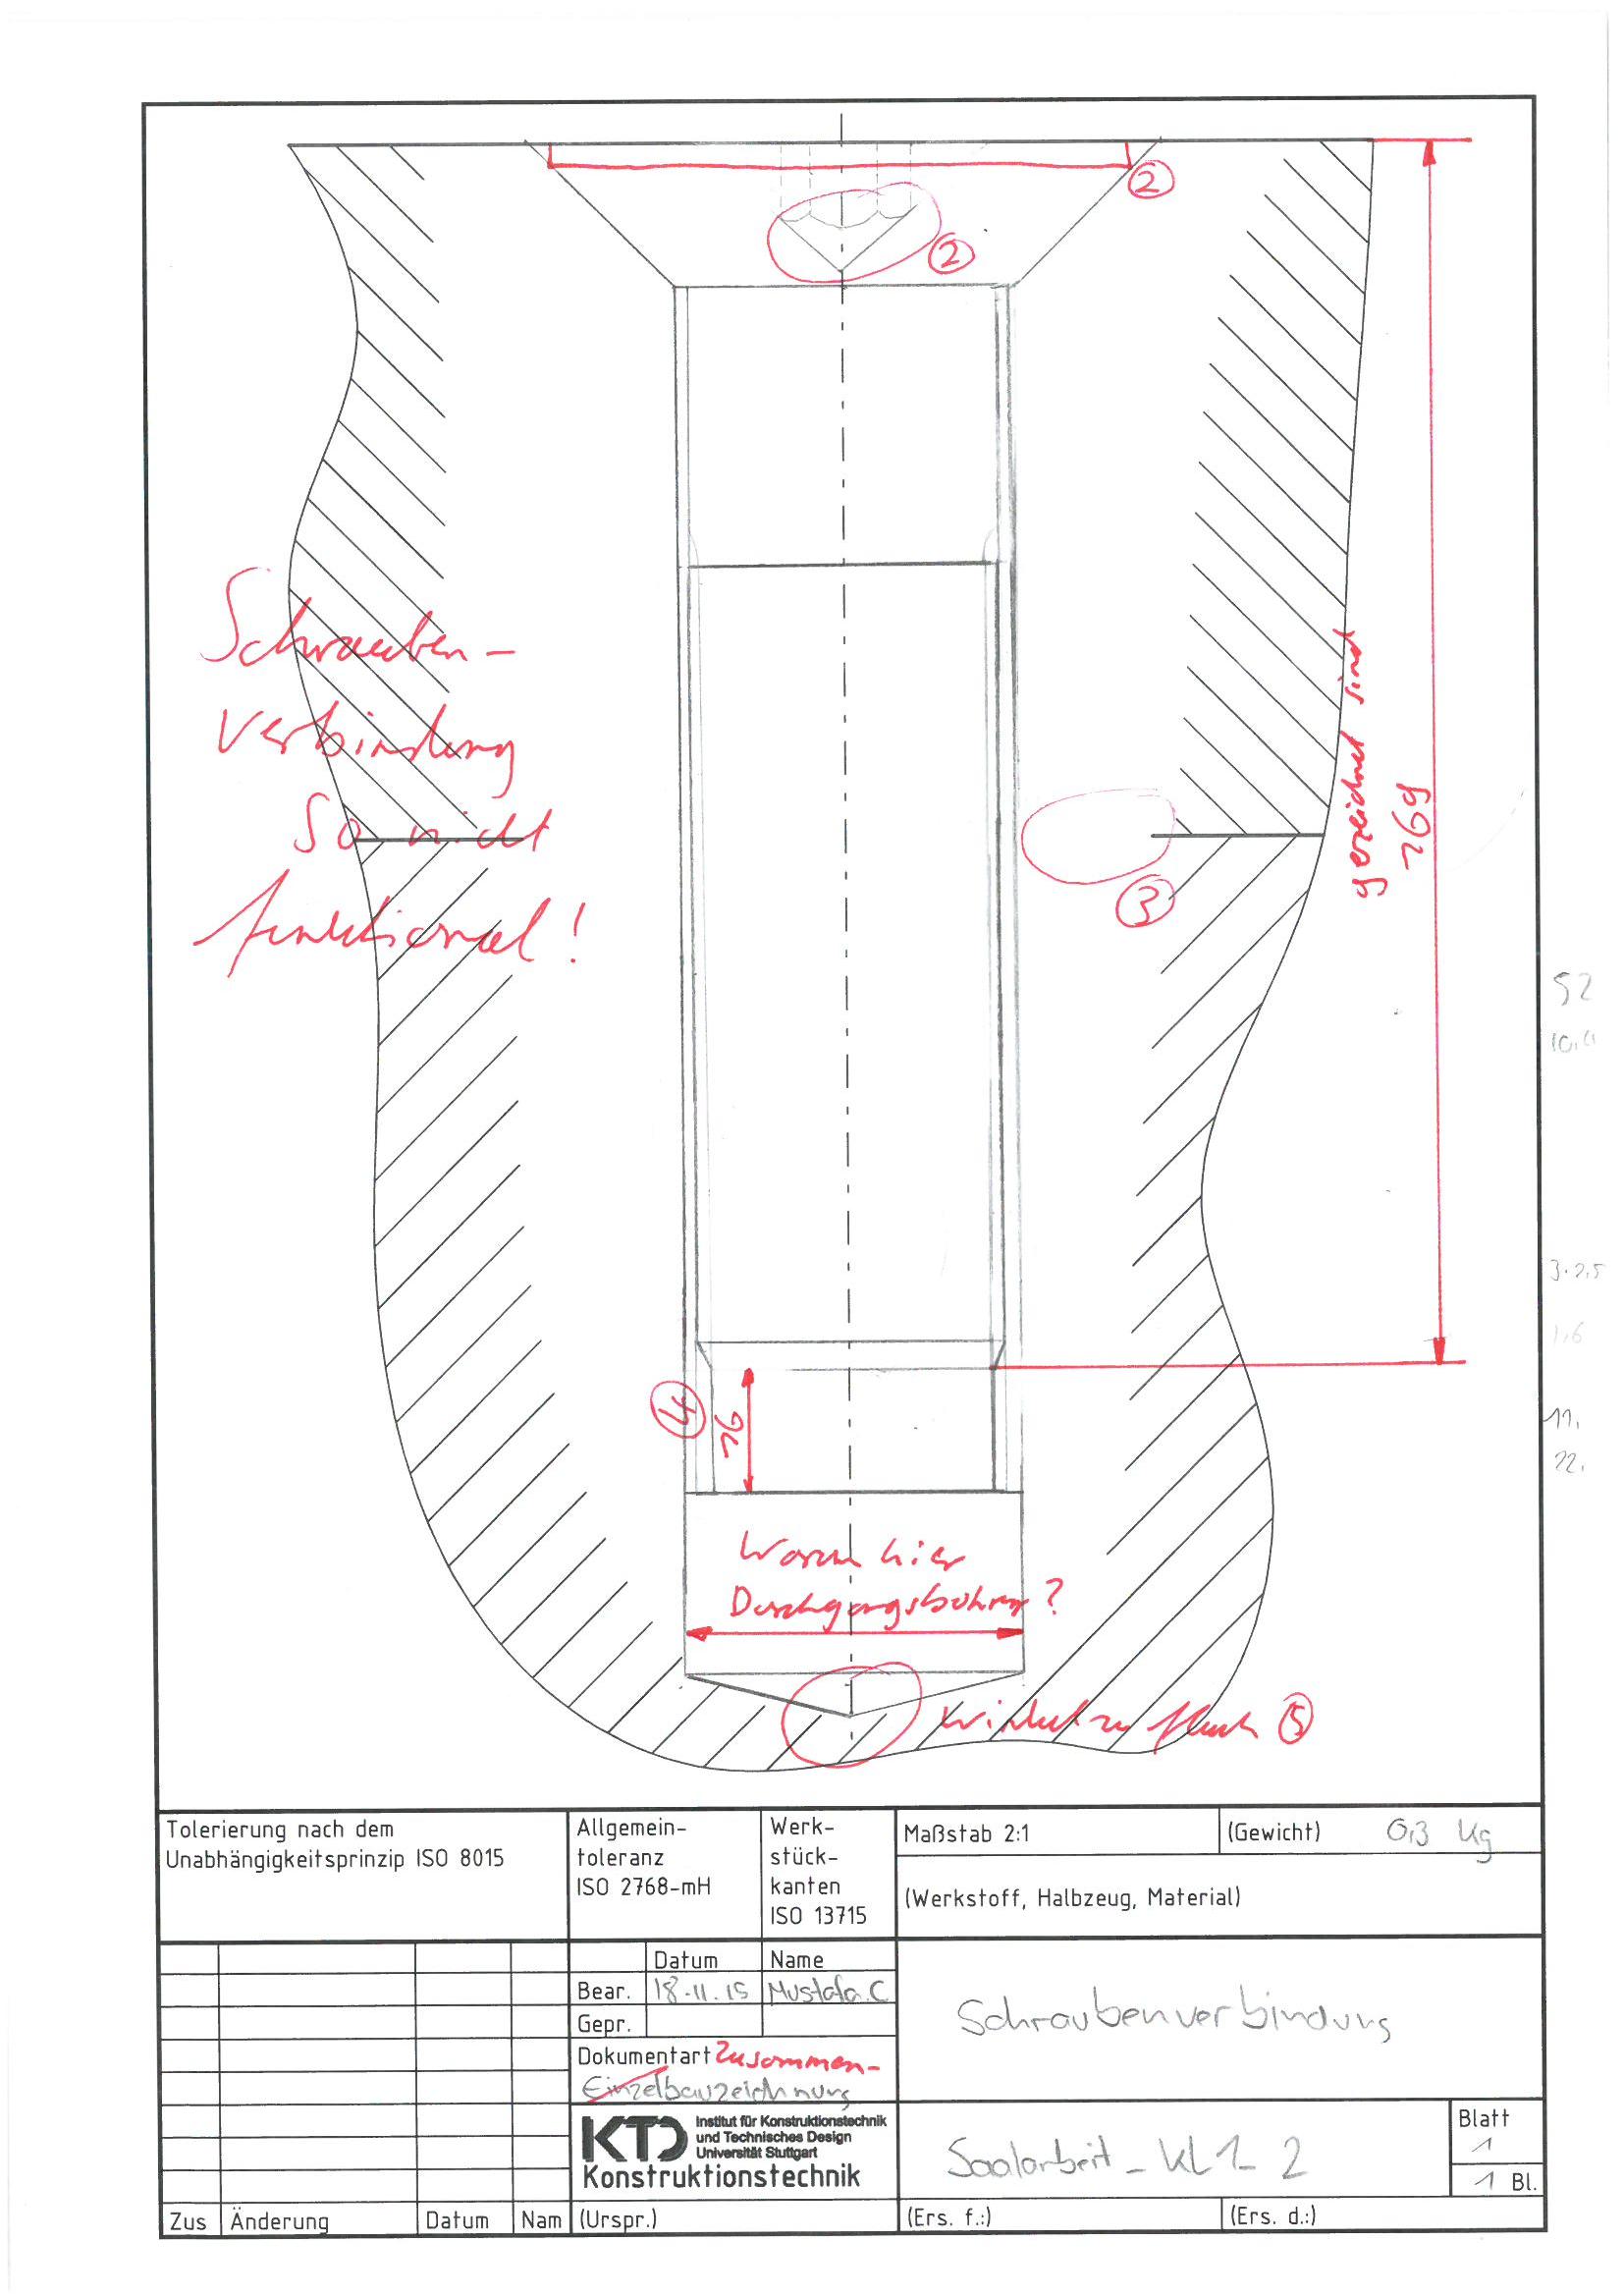 ②
②
Schrauben-
verbindung
so nicht
funktional!
gezeichnet sind
169
③
52
10,4
3·2,5
1,6
11,
22,
④
16
Warum hier
Durchgangsbohrung?
Winkel zu flach ⑤
Tolerierung nach dem
Unabhängigkeitsprinzip ISO 8015
Allgemein-
toleranz
ISO 2768-mH
Werk-
stück-
kanten
ISO 13715
Maßstab 2:1
(Gewicht) 0,3 kg
(Werkstoff, Halbzeug, Material)
Datum Name
Bear. 18.11.15 Mustafa.C
Gepr.
Dokumentart Zusammen-
Einzelbauzeichnung
Schraubenverbindung
KTD Institut für Konstruktionstechnik
und Technisches Design
Universität Stuttgart
Konstruktionstechnik
Saalarbeit_KL1_2
Blatt
1
1 Bl.
Zus Änderung Datum Nam (Urspr.) (Ers. f.:) (Ers. d.:)